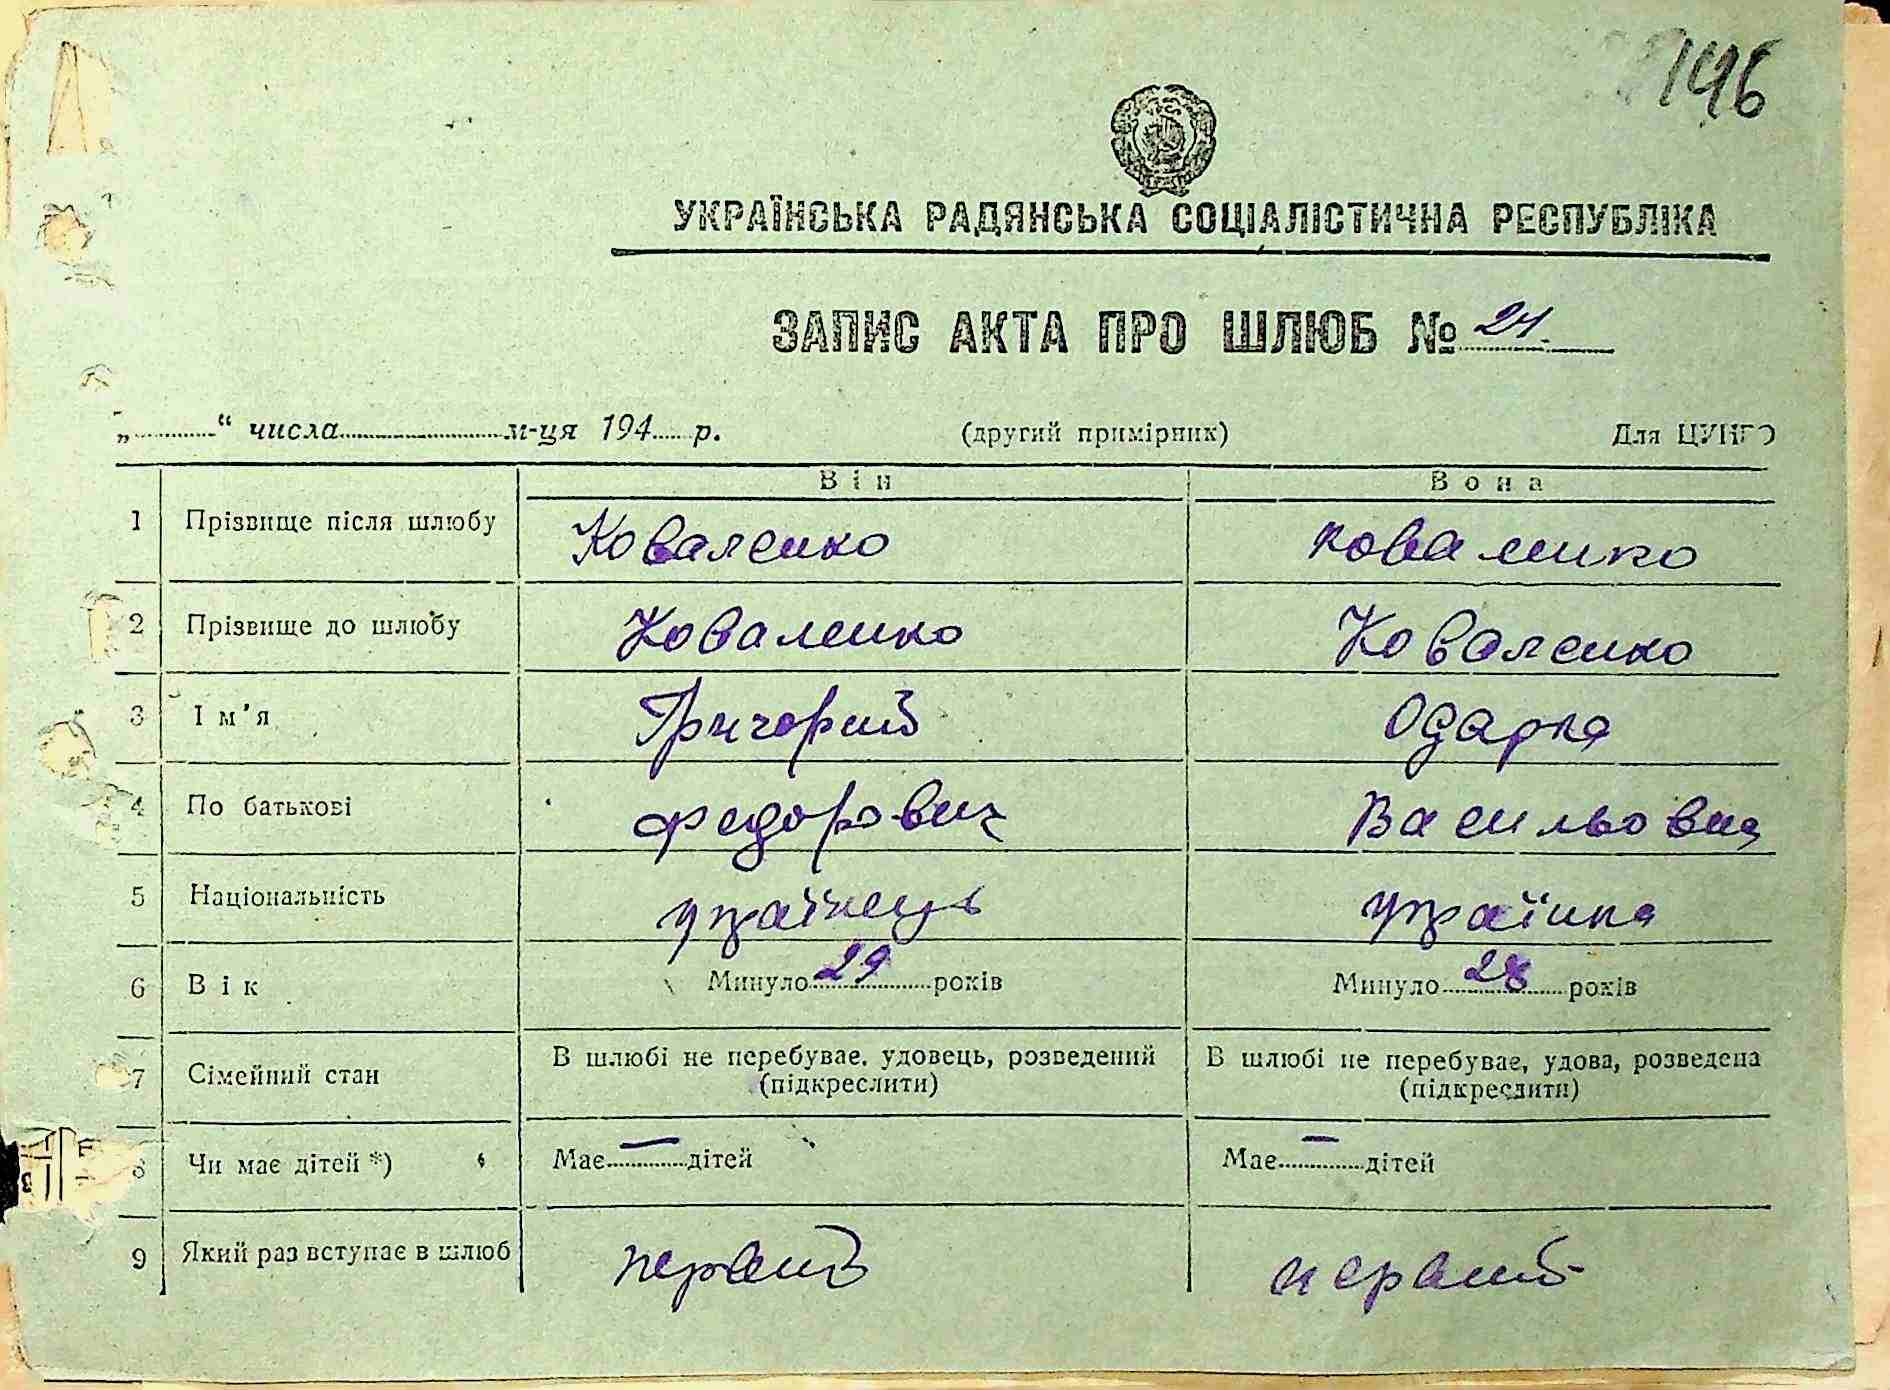 196
УКРАЇНСЬКА РАДЯНСЬКА СОЦІАЛІСТИЧНА РЕСПУБЛІКА
ЗАПИС АКТА ПРО ШЛЮБ № 21.
„ “ числа м-ця 194 р. (другий примірник) Для ЦУНГО
Він Вона
1 Прізвище після шлюбу Коваленко коваленко
2 Прізвище до шлюбу Коваленко Коваленко
3 Ім'я Григорий Одарка
4 По батькові Федорович Васильовна
5 Національність українець українка
6 Вік Минуло 29 років Минуло 28 років
7 Сімейний стан В шлюбі не перебуває, удовець, розведений В шлюбі не перебуває, удова, розведена
(підкреслити) (підкреслити)
8 Чи має дітей *) Має — дітей Має — дітей
9 Який раз вступає в шлюб первий первий